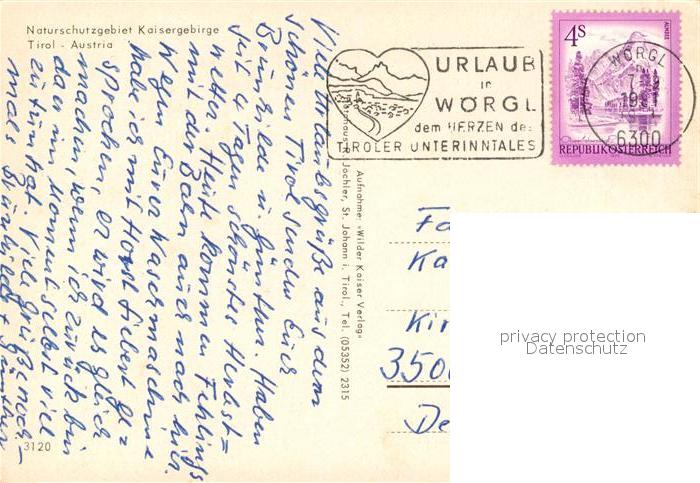 Naturschutzgebiet Kaisergebirge
Tirol - Austria
URLAUB
in
WÖRGL
dem HERZEN des
TIROLER UNTERINNTALES
4S
ALMSEE
REPUBLIK ÖSTERREICH
WÖRGL
6300
Viele Urlaubsgrüße aus dem
schönen Tirol senden Euch
Brunhilde u. Günther. Haben
seit 4 Tagen schönstes Herbst=
wetter. Heute kommen Fehlings
mit der Bahn auch nach hier.
Wegen Eurer Waschmaschine
habe ich mit Horst Siebert ge=
sprochen, er wird es gleich
machen, wenn ich zurück bin
da er im Moment selbst viel
zu tun hat. Viele Grüße noch=
mals Brunhilde + Günther
Aufnahme: »Wilder Kaiser Verlag«
Jöchler, St. Johann i. Tirol., Tel. (05352) 2315
Fa
Ka
Kir
350
De
privacy protection
Datenschutz
3120